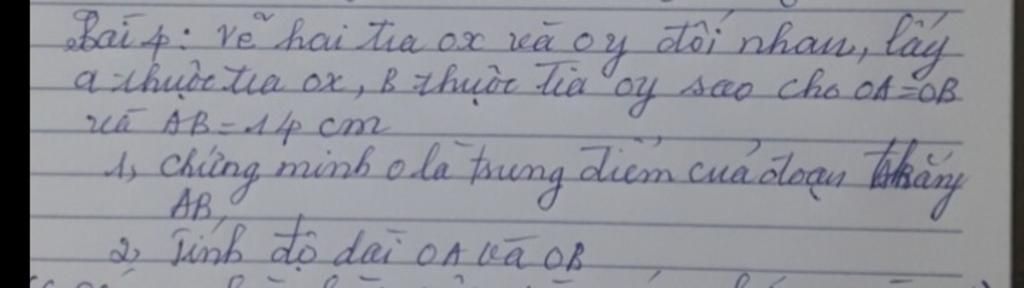 Bài 4: vẽ hai tia ox và oy đối nhau, lấy
a thuộc tia ox, B thuộc tia oy sao cho OA=OB
và AB=14 cm
1, chứng minh o là trung điểm của đoạn thẳng
AB,
2, Tính độ dài OA và OB